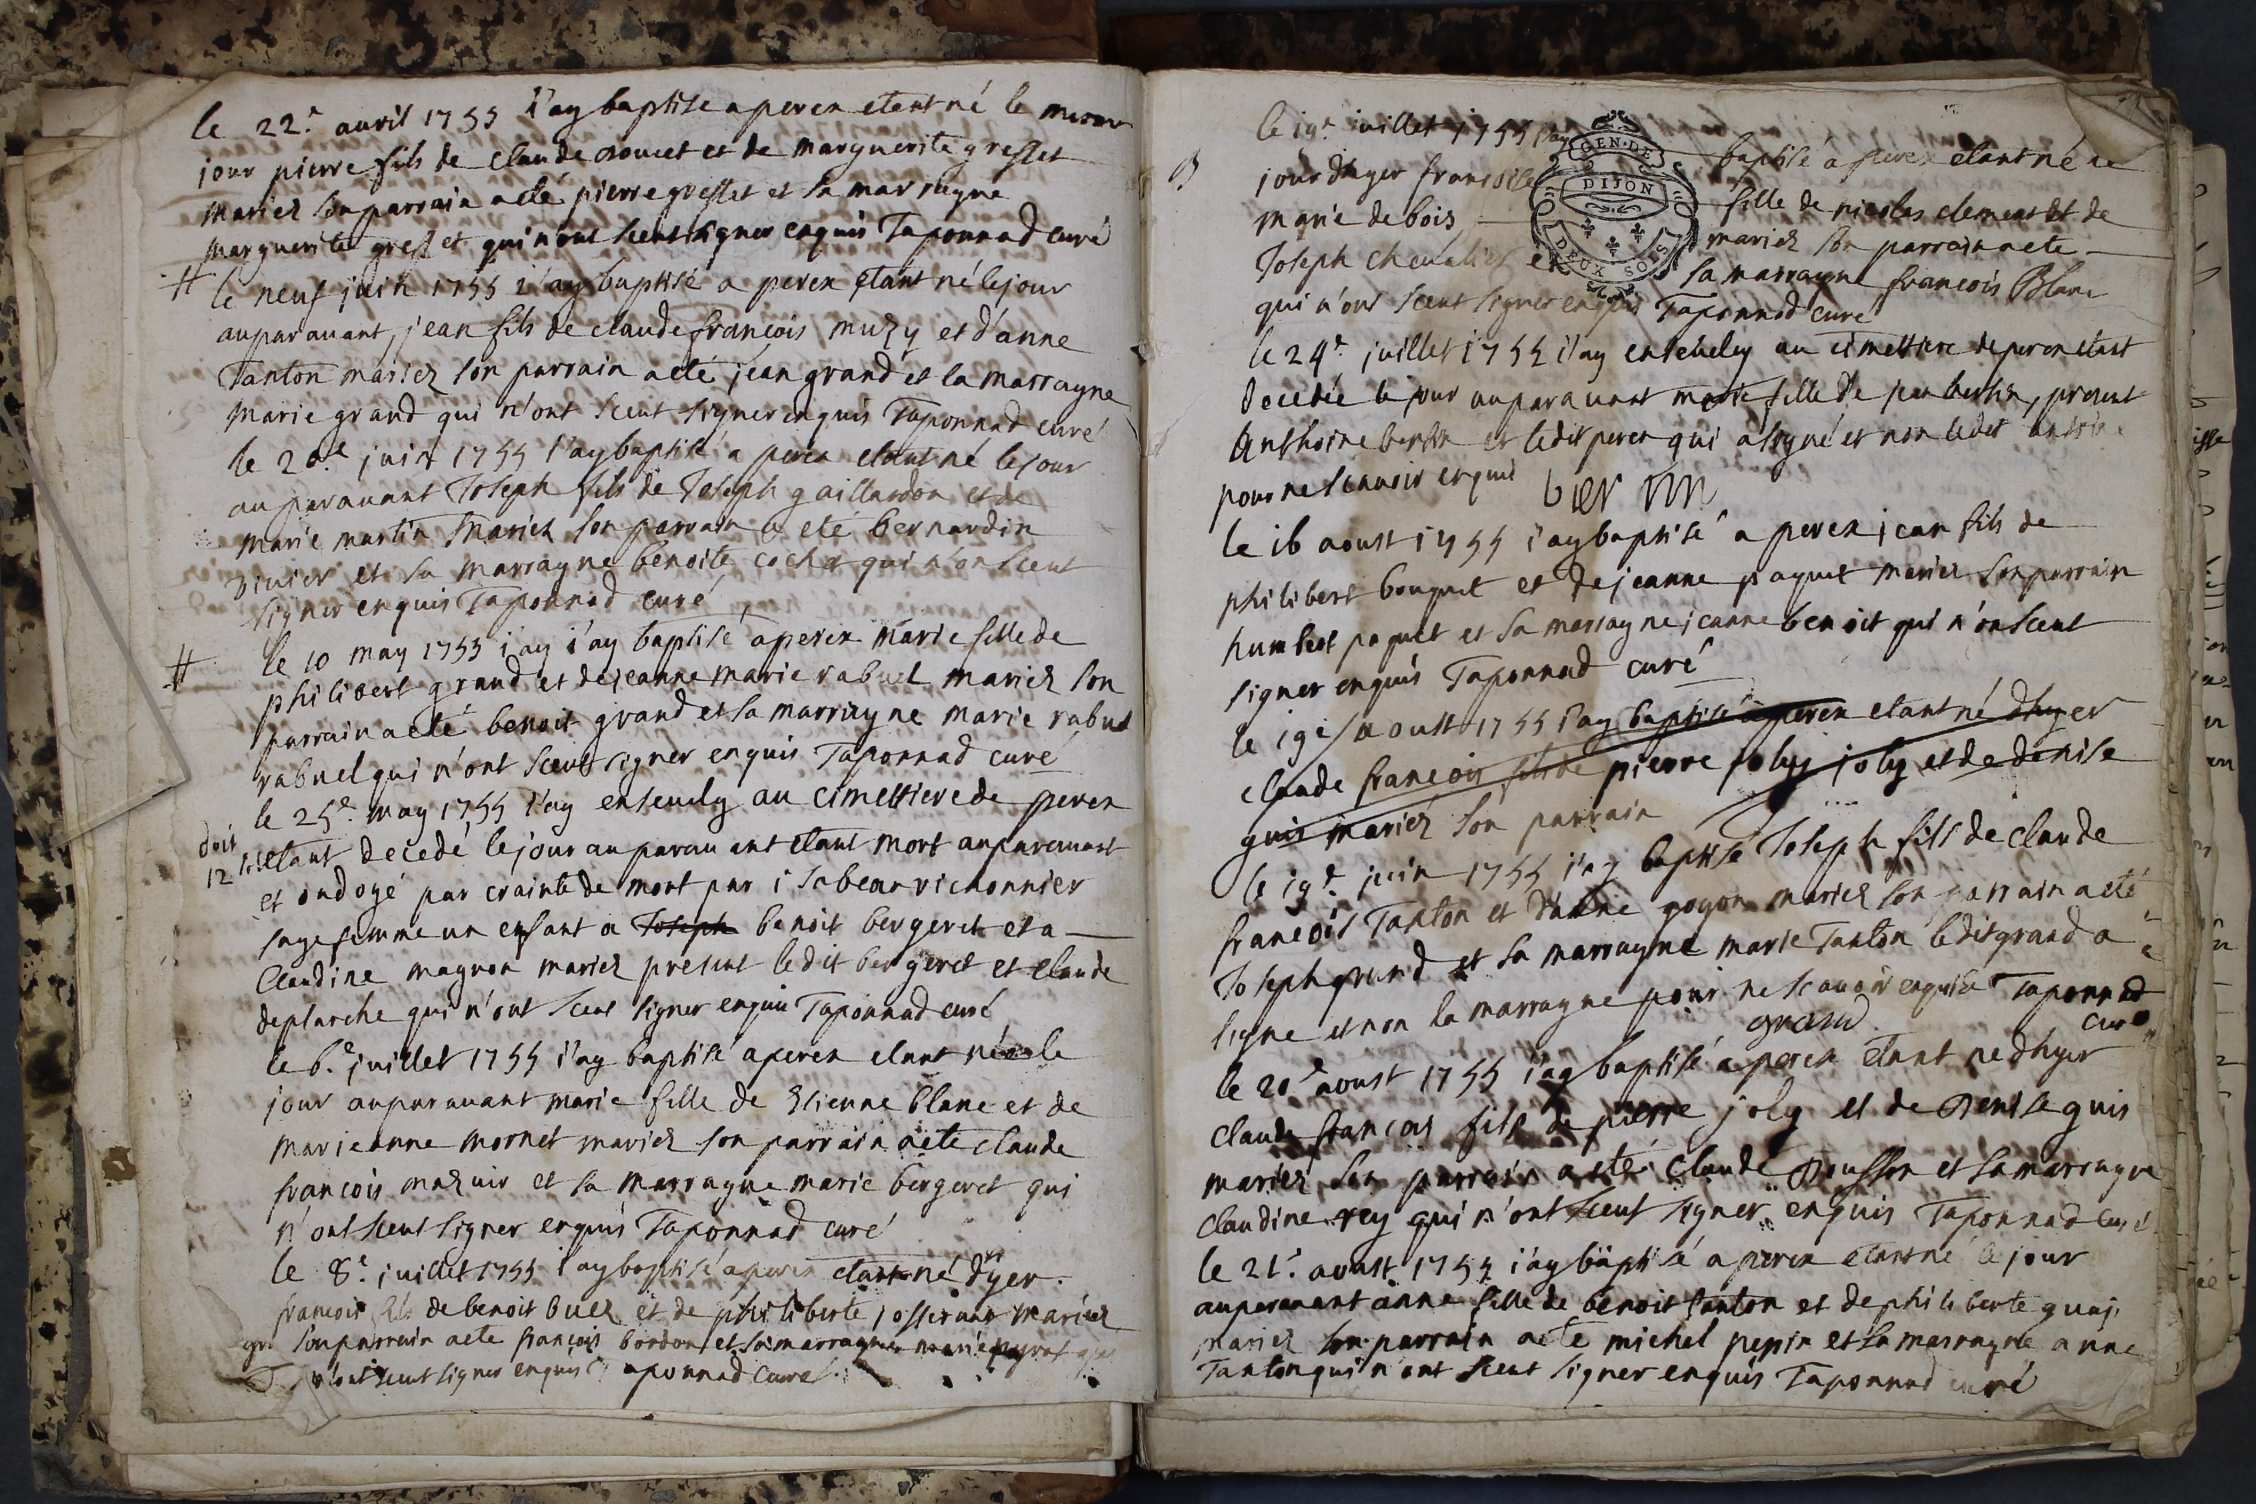 le 22.e avril 1755 i'ay baptisé a peren etant né le mesme
jour pierre fils de claude doucet et de marguerite greffet
mariez son parrain a eté pierre greffet et sa marraigne
marguerite greffet qui n'ont sceut signer enquis Taponnad curé
le neuf juin 1755 i'ay baptisé a peren etant né le jour
auparavant, jean fils de claude francois muzy et d'anne
Tanton mariez son parrain a eté jean grand et la marrayne
marie grand qui n'ont sceut signer enquis Taponnad curé
le 20.e juin 1755 i'ay baptisé a peren etant né le jour
auparavant Joseph fils de Joseph gaillardon et de
marie martin mariez son parrain a eté bernardin
vivier et sa marrayne benoite cochet qui n'on sceut
signer enquis Taponnad curé
le 10 may 1755 j'ay i'ay baptisé a peren marie fille de
philibert grand et de jeanne marie rabuel mariez son
parrain a eté benoit grand et sa marrayne marie rabuel
rabuel qui n'ont sceut signer enquis Taponnad curé
le 25e. may 1755 i'ay ensevely au cimettiere de peren
doit
12 s etant decedé le jour auparavant etant mort auparavant
et ondoyé par crainte de mort par isabeau vichonnier
sage femme un enfant a Joseph benoit bergeret et a
Claudine magnon mariez present ledit bergeret et claude
deplanche qui n'ont sceut signer enquis Taponnad curé
le 6.e juillet 1755 i'ay baptisé a peren etant né le
jour auparavant marie fille de Etienne blanc et de
marie anne mornet mariez son parrain a eté claude
francois mazuir et sa marrayne marie bergeret qui
n'ont sceut signer enquis Taponnad curé
le 8.e juillet 1755 i'ay baptisé a peren etant né d'hyer
francois fils de benoit buez et de philiberte josserand mariez
son parrain a eté francois bordon et sa marrayne marie
n'ont sceut signer enquis Taponnad curé
le 19.e juillet 1755 i'ay baptisé a peren etant né le
jour d'hyer francoise fille de nicolas clement et de
marie debois mariez son parrain a eté
Joseph chevalier et sa marrayne francois Blanc
qui n'ont sceut signer enquis Taponnad curé
le 24.e juillet 1755 i'ay ensevely au cimettiere de peren etant
decedée le jour auparavant marie fille de jean bertin, present
Anthoine bertin et ledit peren qui a signé et non ledit antoine
pour ne scavoir enquis
le 16 aoust 1755 i'ay baptisé a peren jean fils de
philibert bouquet et de jeanne paquet mariez son parrain
humbert paquet et sa marrayne jeanne benoit qui n'on sceut
signer enquis Taponnad curé
le 19e aoust 1755 i'ay baptisé a peren etant né d'hyer
claude francois fils de pierre joly joly et de denise
guis mariez son parrain
le 19.e juin 1755 i'ay baptisé Joseph fils de claude
francois Tanton et d'anne goyon mariez son parrain a eté
Joseph grand et sa marrayne marie Tanton ledit grand a
signe et non la marrayne pour ne scavoir enquise Taponnad
grand curé
le 20e aoust 1755 i'ay baptisé a peren etant né d'hyer
claude francois fils de pierre joly et de denise guis
mariez son parrain a eté claude dousson et sa marrayne
claudine rey qui n'ont sceut signer enquis Taponnad curé
le 21.e aoust 1755 i'ay baptisé a peren etant né le jour
auparavant anne fille de benoit tanton et de philiberte
mariez son parrain a eté michel pepin et sa marrayne anne
Tanton qui n'ont sceut signer enquis Taponnad curé
GEN · DE
DIJON
DEUX SOLS